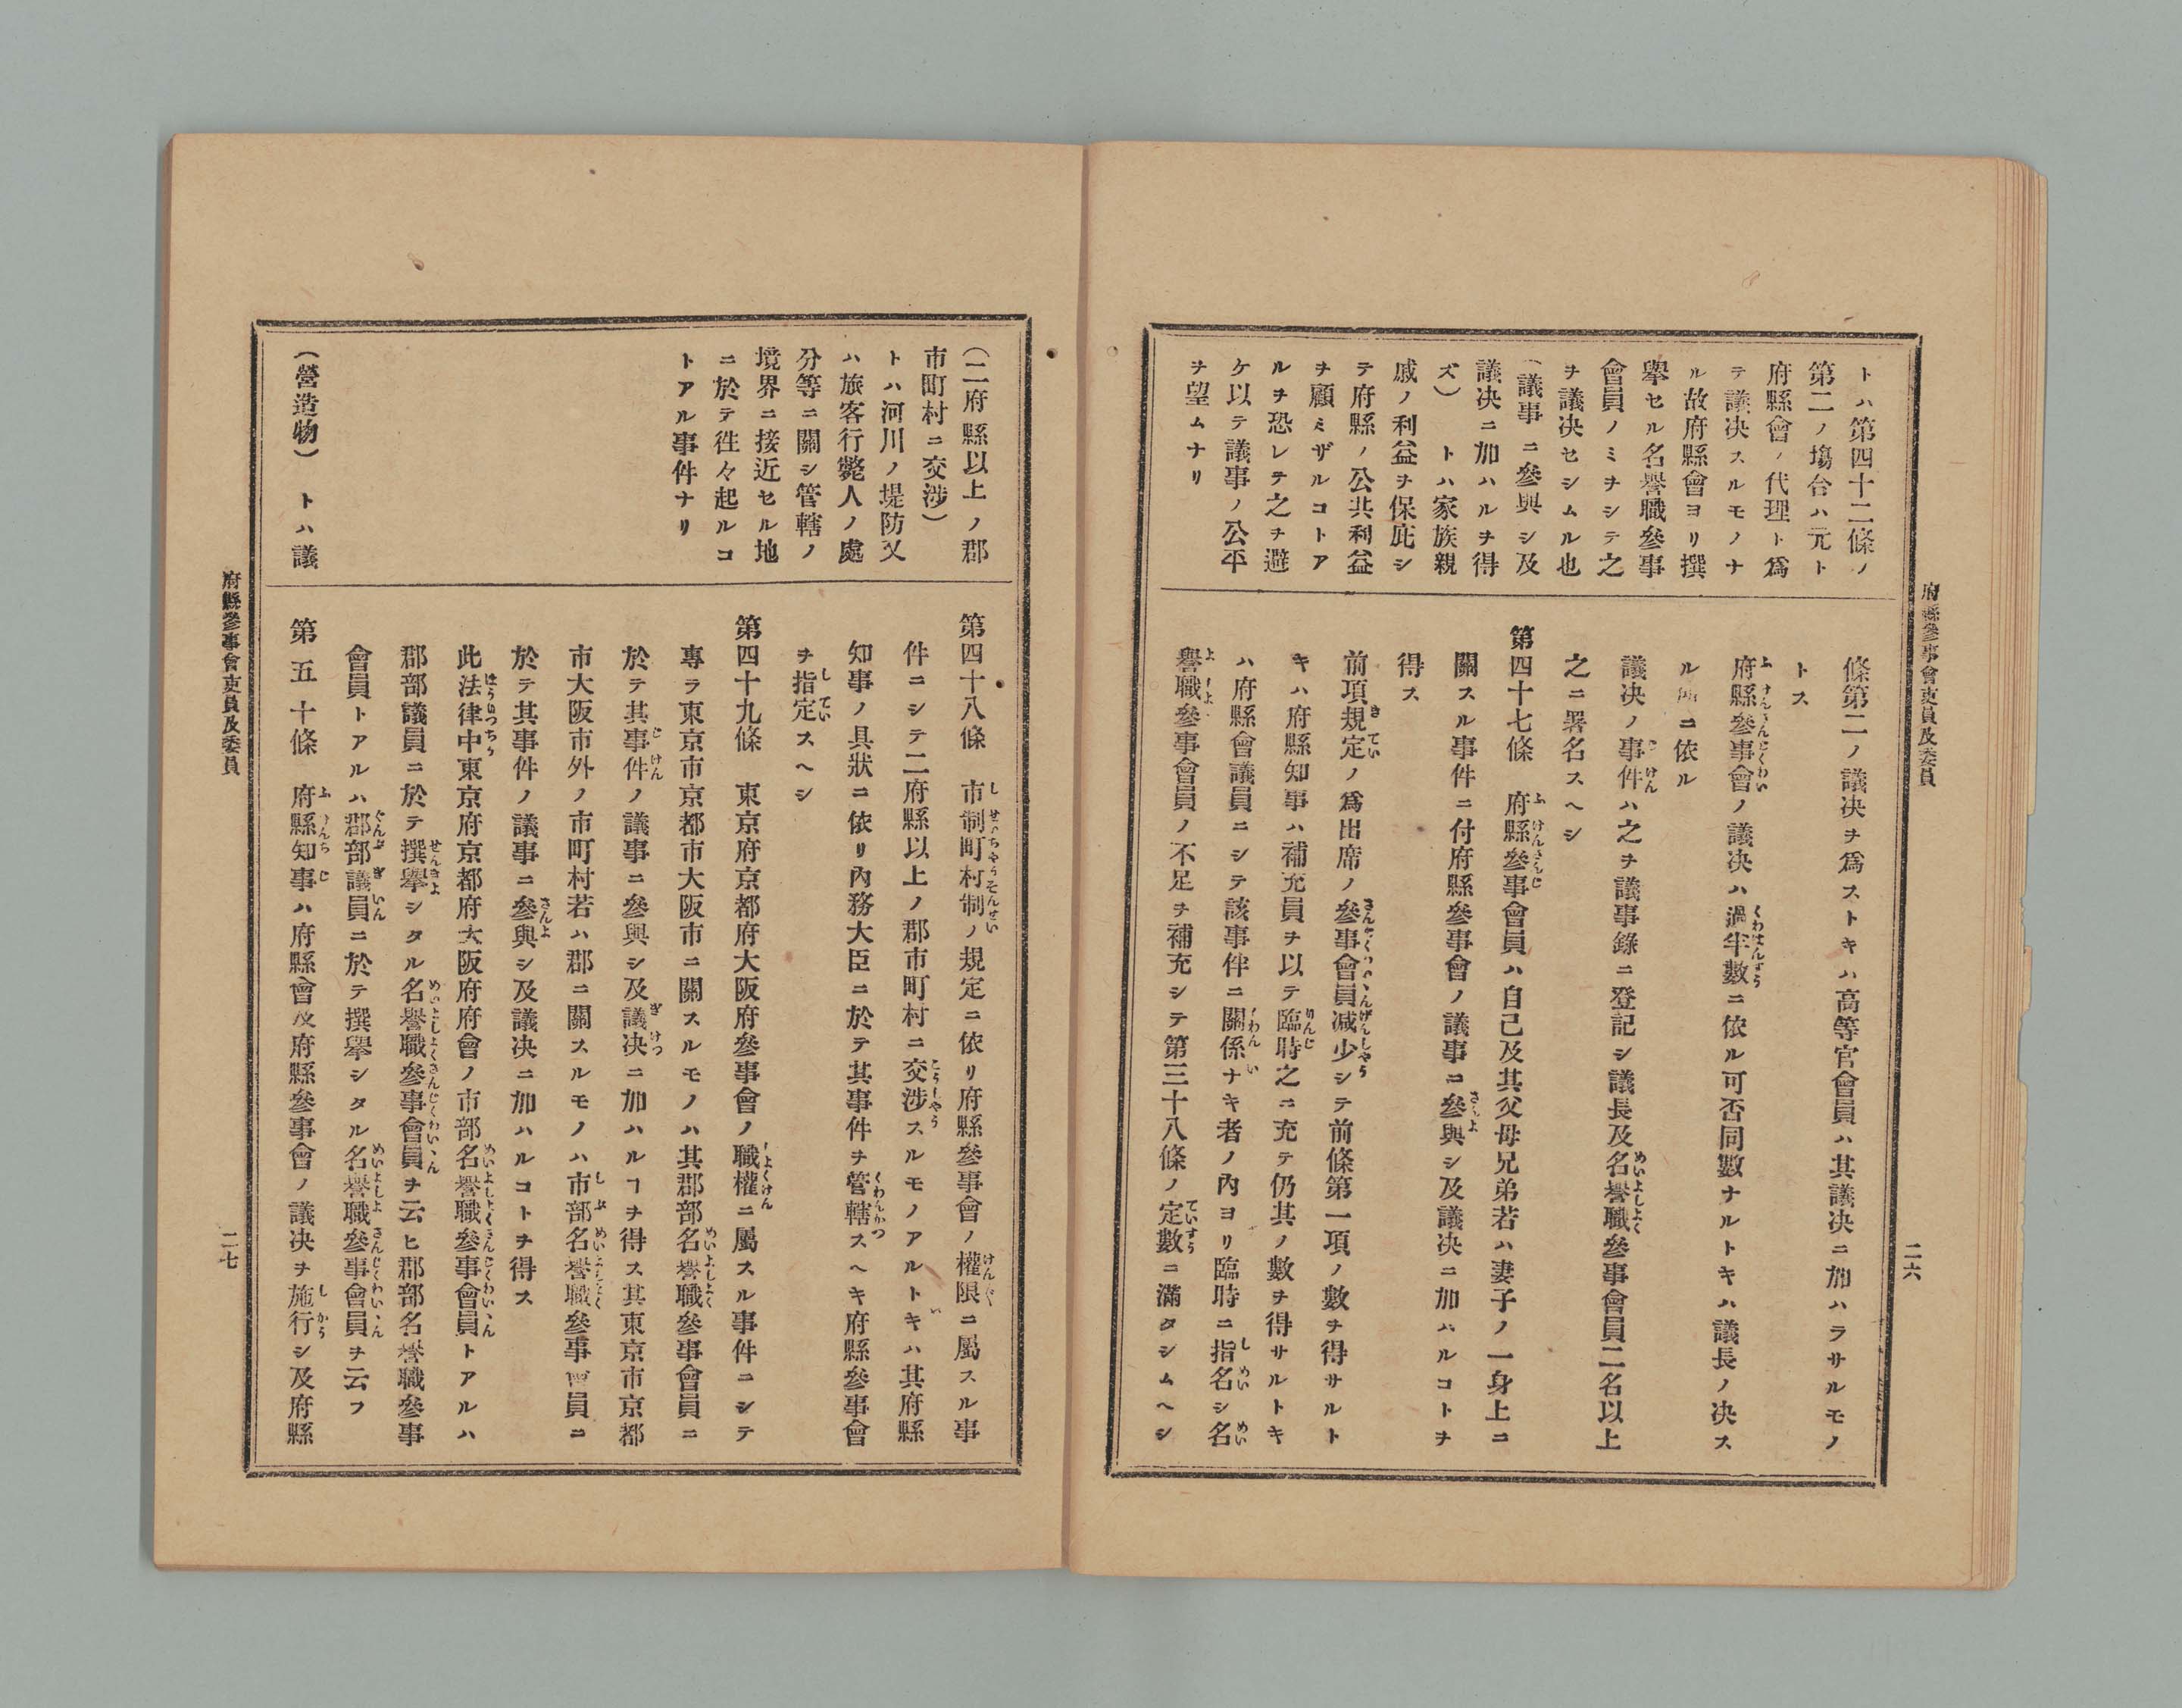 府縣參事會吏員及委員
二六
トハ第四十二條ノ
第二ノ塲合ハ元ト
府縣會ノ代理ト爲
テ議决スルモノナ
ル故府縣會ヨリ撰
擧セル名譽職參事
會員ノミヲシテ之
ヲ議决セシムル也
(議事ニ參與シ及
議决ニ加ハルヲ得
ズ) トハ家族親
戚ノ利益ヲ保庇シ
テ府縣ノ公共利益
ヲ顧ミザルコトア
ルヲ恐レテ之ヲ避
ケ以テ議事ノ公平
ヲ望ムナリ
條第二ノ議决ヲ爲ストキハ高等官會員ハ其議决ニ加ハラサルモノ
トス
府縣參事會ノ議决ハ過半數ニ依ル可否同數ナルトキハ議長ノ决ス
ル所ニ依ル
議决ノ事件ハ之ヲ議事錄ニ登記シ議長及名譽職參事會員二名以上
之ニ署名スヘシ
第四十七條 府縣參事會員ハ自己及其父母兄弟若ハ妻子ノ一身上ニ
關スル事件ニ付府縣參事會ノ議事ニ參與シ及議决ニ加ハルコトヲ
得ス
前項規定ノ爲出席ノ參事會員減少シテ前條第一項ノ數ヲ得サルト
キハ府縣知事ハ補充員ヲ以テ臨時之ニ充テ仍其ノ數ヲ得サルトキ
ハ府縣會議員ニシテ該事件ニ關係ナキ者ノ內ヨリ臨時ニ指名シ名
譽職參事會員ノ不足ヲ補充シテ第三十八條ノ定數ニ滿タシムヘシ
(二府縣以上ノ郡
市町村ニ交渉)
トハ河川ノ堤防又
ハ旅客行斃人ノ處
分等ニ關シ管轄ノ
境界ニ接近セル地
ニ於テ徃々起ルコ
トアル事件ナリ
(營造物) トハ議
第四十八條 市制町村制ノ規定ニ依リ府縣參事會ノ權限ニ屬スル事
件ニシテ二府縣以上ノ郡市町村ニ交渉スルモノアルトキハ其府縣
知事ノ具狀ニ依リ內務大臣ニ於テ其事件ヲ管轄スヘキ府縣參事會
ヲ指定スヘシ
第四十九條 東京府京都府大阪府參事會ノ職權ニ屬スル事件ニシテ
專ラ東京市京都市大阪市ニ關スルモノハ其郡部名譽職參事會員ニ
於テ其事件ノ議事ニ參與シ及議决ニ加ハルヿヲ得ス其東京市京都
市大阪市外ノ市町村若ハ郡ニ關スルモノハ市部名譽職參事會員ニ
於テ其事件ノ議事ニ參與シ及議决ニ加ハルコトヲ得ス
此法律中東京府京都府大阪府府會ノ市部名譽職參事會員トアルハ
郡部議員ニ於テ撰擧シタル名譽職參事會員ヲ云ヒ郡部名譽職參事
會員トアルハ郡部議員ニ於テ撰擧シタル名譽職參事會員ヲ云フ
第五十條 府縣知事ハ府縣會及府縣參事會ノ議决ヲ施行シ及府縣
府縣參事會吏員及委員
二七